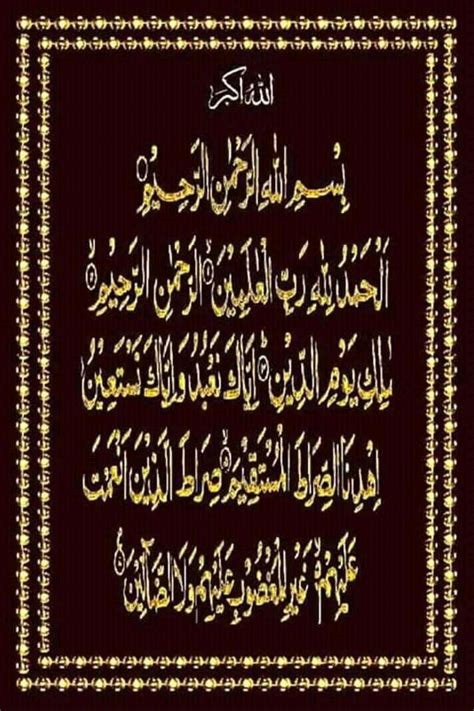 الله اکبر
بِسْمِ اللهِ الرَّحْمٰنِ الرَّحِيْمِ
اَلْحَمْدُ لِلهِ رَبِّ الْعٰلَمِيْنَ الرَّحْمٰنِ الرَّحِيْمِ
مٰلِكِ يَوْمِ الدِّيْنِ اِيَّاكَ نَعْبُدُ وَاِيَّاكَ نَسْتَعِيْنُ
اِهْدِنَا الصِّرَاطَ الْمُسْتَقِيْمَ صِرَاطَ الَّذِيْنَ اَنْعَمْتَ
عَلَيْهِمْ غَيْرِ الْمَغْضُوْبِ عَلَيْهِمْ وَلَا الضَّآلِّيْنَ